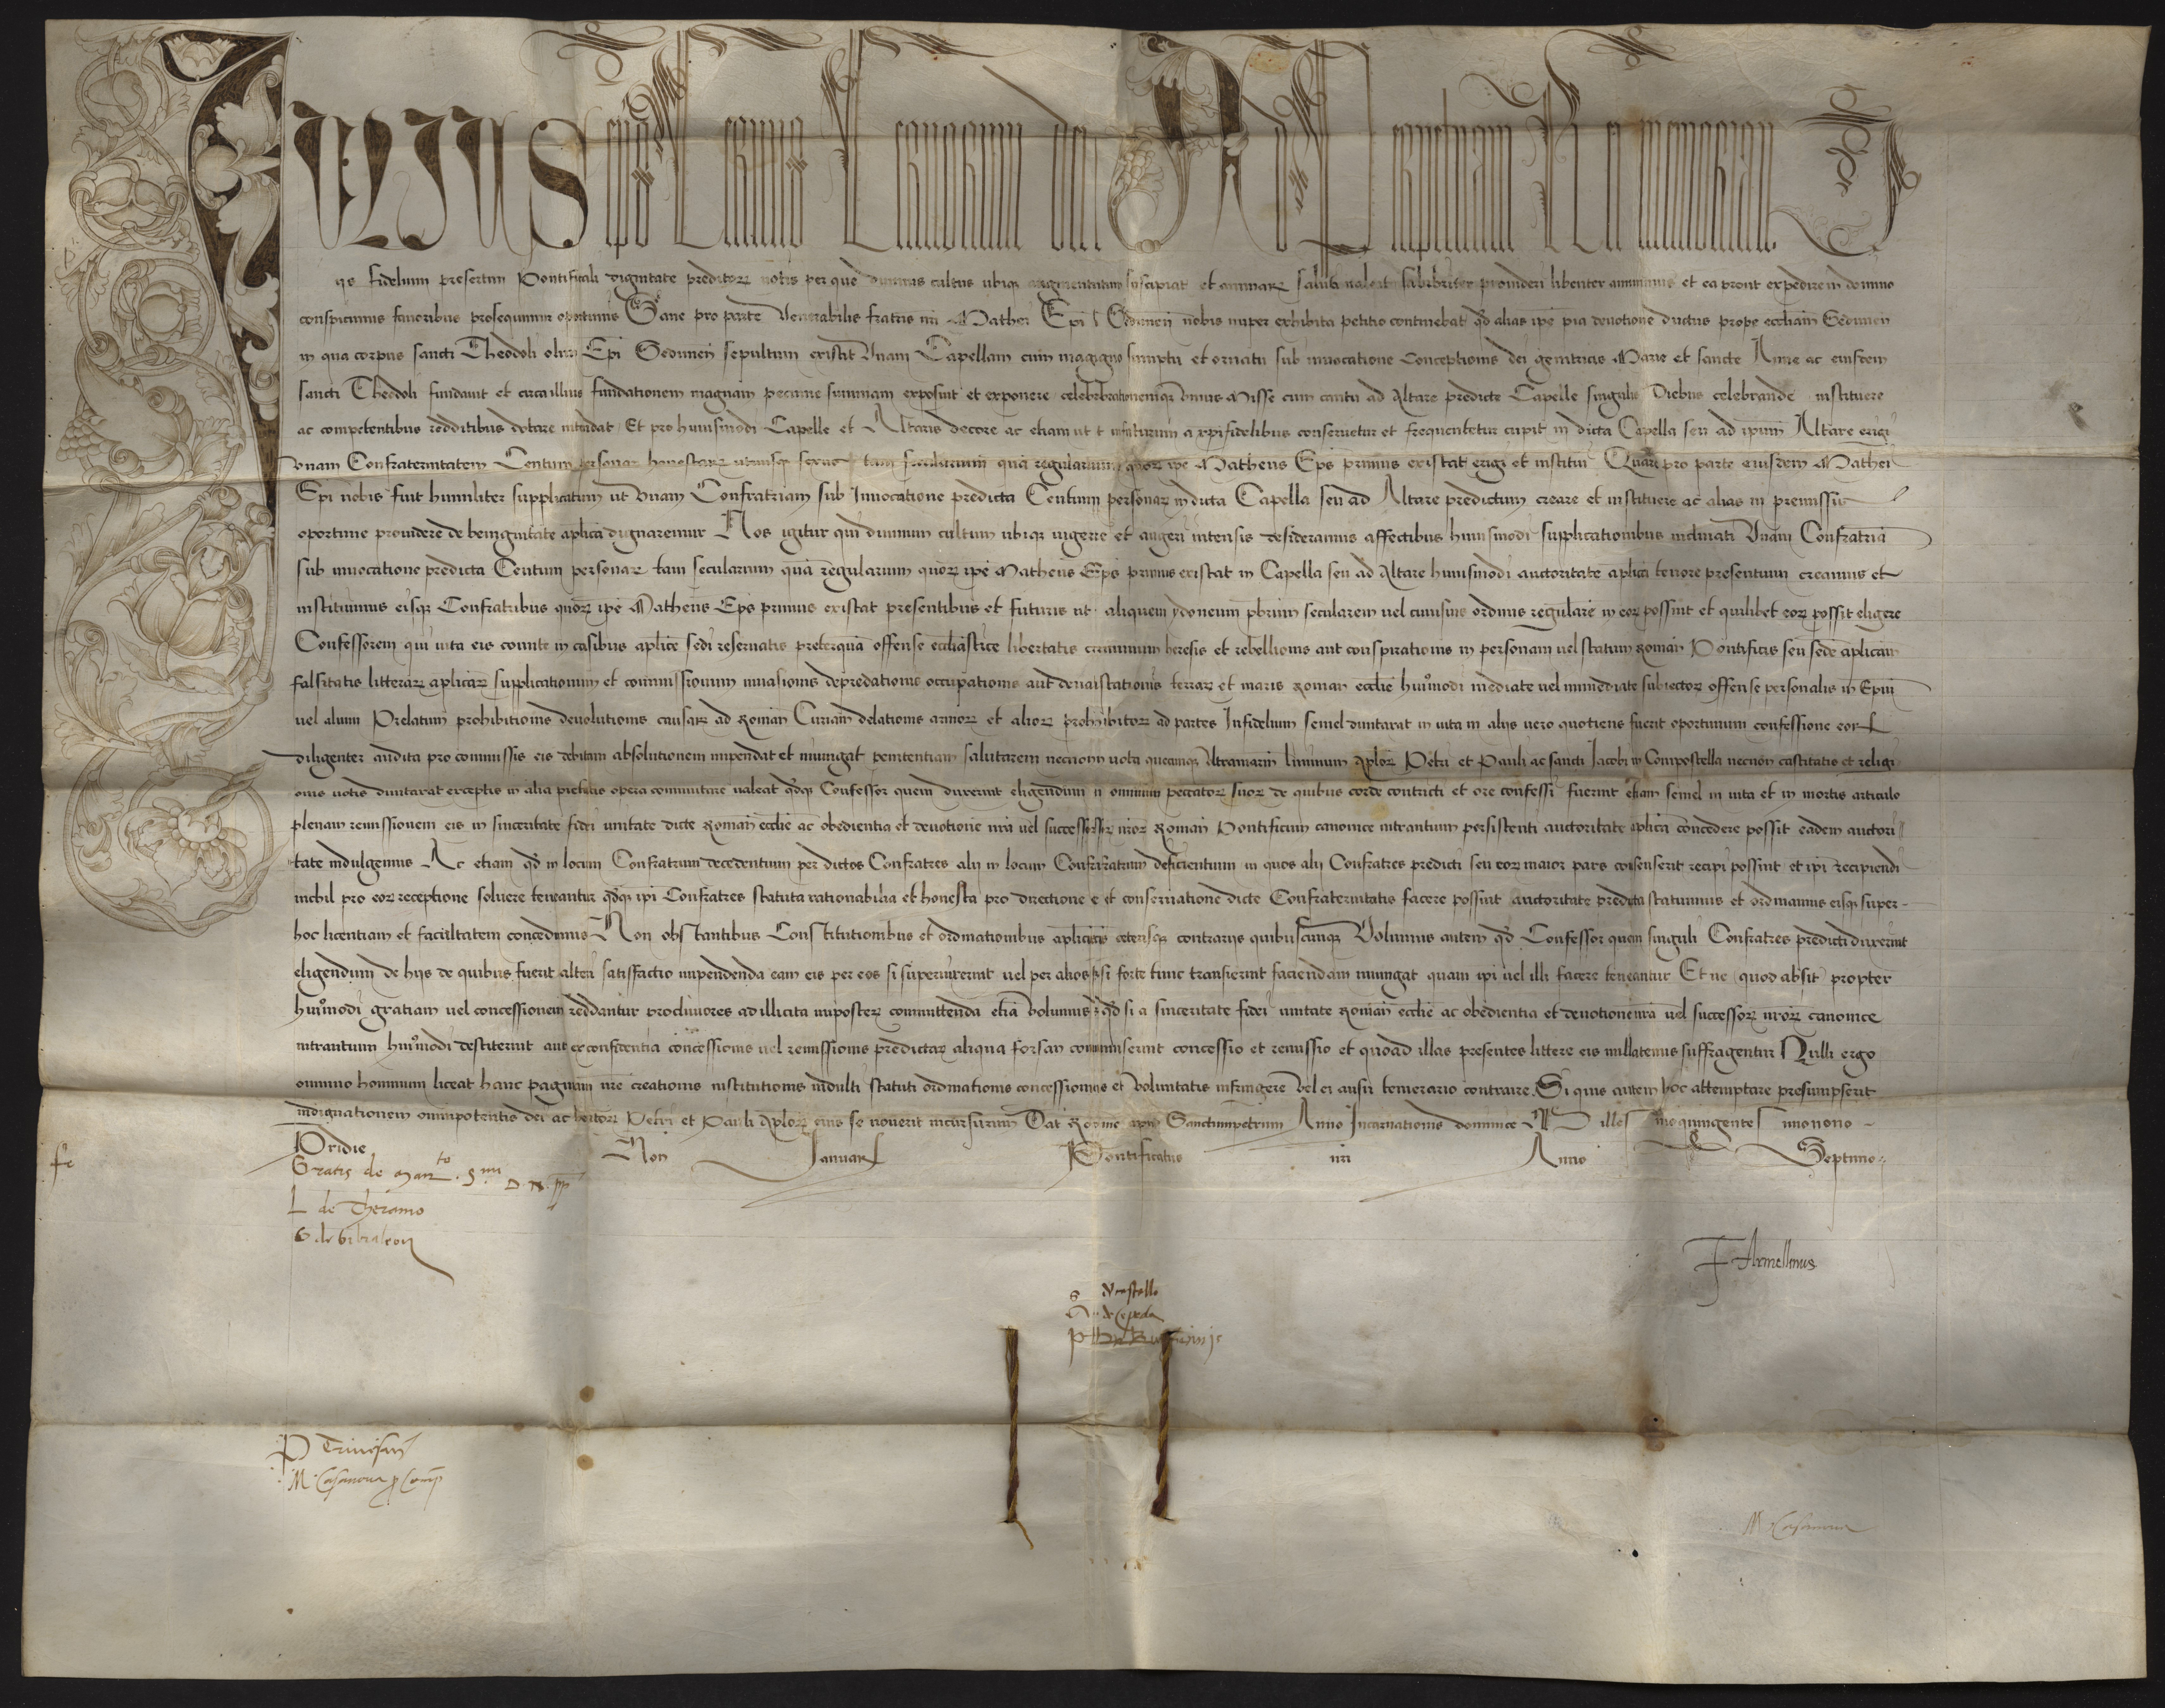 IULIUS eps Servus Servorum dei Ad Perpetuam Rei memoriam
iis fidelium presertim Pontificali dignitate preditorꝝ votis per que divinus cultus ubiqꝫ augmentum suscipiat et animarꝝ saluti valeat salubriter provideri libenter annuimus et ea prout expedire in domino
conspicimus favoribus prosequimur oportunis Sane pro parte Venerabilis fratris nri Mathei Epi Sedunen nobis nuper exhibita petitio continebat qd alias ipe pia devotione ductus prope eccliam Sedunen
in qua corpus sancti Theodoli olim Epi Sedunen sepultum existit Unam Capellam cum magno sumptu et ornatu sub invocatione Conceptionis dei genitricis Marie et sancte Anne ac eiusdem
sancti Theodoli fundavit et circa illius fundationem magnam pecunie summam exposuit et exponere celebrationemqꝫ unius Misse cum cantu ad Altare predicte Capelle singulis Diebus celebrande instituere
ac competentibus redditibus dotare intendat Et pro huiusmodi Capelle et Altaris decore ac etiam ut in futurum a xpifidelibus conservetur et frequentetur cupit in dicta Capella seu ad ipum Altare erigi
unam Confraternitatem Centum personarꝝ honestarꝝ utriusqꝫ sexus tam secularium qua regularium quorꝝ ipe Matheus Eps primus existat erigi et institui Quare pro parte eiusdem Mathei
Epi nobis fuit humiliter supplicatum ut Unam Confratriam sub Invocatione predicta Centum personarꝝ in dicta Capella seu ad Altare predictum creare et instituere ac alias in premissis
oportune providere de benignitate aplica dignaremur Nos igitur qui divinum cultum ubiqꝫ vigere et augeri intensis desideramus affectibus huiusmodi supplicationibus inclinati Unam Confratria
sub invocatione predicta Centum personarꝝ tam secularium qua regularium quorꝝ ipe Matheus Eps primus existat in Capella seu ad Altare huiusmodi auctoritate aplica tenore presentium creamus et
instituimus eisqꝫ Confratribus quorꝝ ipe Matheus Eps primus existat presentibus et futuris ut aliquem ydoneum pbrum secularem vel cuiusvis ordinis regulare in eorꝝ possint et quilibet eorꝝ possit eligere
Confessorem qui vita eis comite in casibus aplice sedi reservatis preterqua offense ecclastice libertatis criminum heresis et rebellionis aut conspirationis in personam vel statum Roman Pontificis seu sede aplicam
falsitatis litterarꝝ aplicarꝝ supplicationum et commissionum invasionis depredationis occupationis aut devastationis terrarꝝ et maris Roman ecclie huiomodi mediate vel immediate subiectorꝝ offense personalis in Epum
vel alium Prelatum prohibitionis devolutionis causarꝝ ad Roman Curiam delationis armorꝝ et aliorꝝ prohibitorꝝ ad partes Infidelium semel duntaxat in vita in aliis vero quotiens fuerit oportunum confessione eorꝝ
diligenter audita pro commissis eis debitam absolutionem impendat et iniungat penitentiam salutarem necnon vota quecunqꝫ Ultramarin liminum aplorꝝ Petri et Pauli ac sancti Jacobi in Compostella necnon castitatis et religi
onis votis duntaxat exceptis in alia pietatis opera commutare valeat qdqꝫ Confessor quem duxerint eligendum omnium peccatorꝝ suorꝝ de quibus corde contriti et ore confessi fuerint etiam semel in vita et in mortis articulo
plenam remissionem eis in sinceritate fidei unitate dicte Roman ecclie ac obedientia et devotione nra vel successorꝝ nrorꝝ Roman Pontificum canonice intrantium persistenti auctoritate aplica concedere possit eadem auctori
tate indulgemus Ac etiam qd in locum Confratrum decedentium per dictos Confratres alii in locum Confratrum deficientium in quos alii Confratres predicti seu eorꝝ maior pars consenserit recipi possint et ipi recipiendi
nichil pro eorꝝ receptione solvere teneantur qdqꝫ ipi Confratres statuta rationabilia et honesta pro directione e et conservatione dicte Confraternitatis facere possint auctoritate predicta statuimus et ordinamus eisqꝫ super
hoc licentiam et facultatem concedimus Non obstantibus Constitutionibus et ordinationibus aplicis ceterisqꝫ contrariis quibuscunqꝫ Volumus autem qd Confessor quem singuli Confratres predicti duxerint
eligendum de hiis de quibus fuerit alteri satisfactio impendenda eam eis per eos si supervixerint vel per alios si forte tunc transierint faciendam iniungat quam ipi vel illi facere teneantur Et ne (quod absit) propter
huiomodi gratiam vel concessionem reddantur procliviores ad illicita imposterꝝ committenda etia Volumus qd si a sinceritate fidei unitate Roman ecclie ac obedientia et devotione nra vel successorꝝ nrorꝝ canonice
intrantium huiomodi destiterint aut ex confidentia concessionis vel remissionis predictarꝝ aliqua forsan commiserint concessio et remissio et quoad illas presentes littere eis nullatenus suffragentur Nulli ergo
omnino hominum liceat hanc paginam nre creationis institutionis indulti statuti ordinationis concessionis et Voluntatis infringere Vel ei ausu temerario contraire. Si quis autem hoc attemptare presumpserit
indignationem omnipotentis dei ac beatorꝝ Petri et Pauli Aplorꝝ eius se noverit incursurum Dat Rome apud Sanctumpetrum Anno Incarnationis dominice Millesimoquingentesimonono
Pridie Non Januarꝭ Pontificatus nri Anno Septimo
Gratis de manto Smi D. N. pp
L de Theramo
G de Gibraleon
F Armellinus
S de Castello
A de Cepeda
P Trivisan
M Casanova p Comp
M Casanova